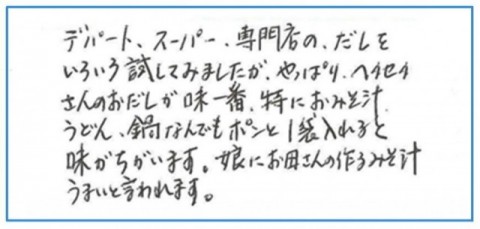 デパート、スーパー、専門店の、だしを
いろいろ試してみましたが、やっぱり、ヘイセイ
さんのおだしが味一番、特におみそ汁
うどん、鍋なんでもポンと1袋入れると
味がちがいます。娘にお母さんの作るみそ汁
うまいと言われます。